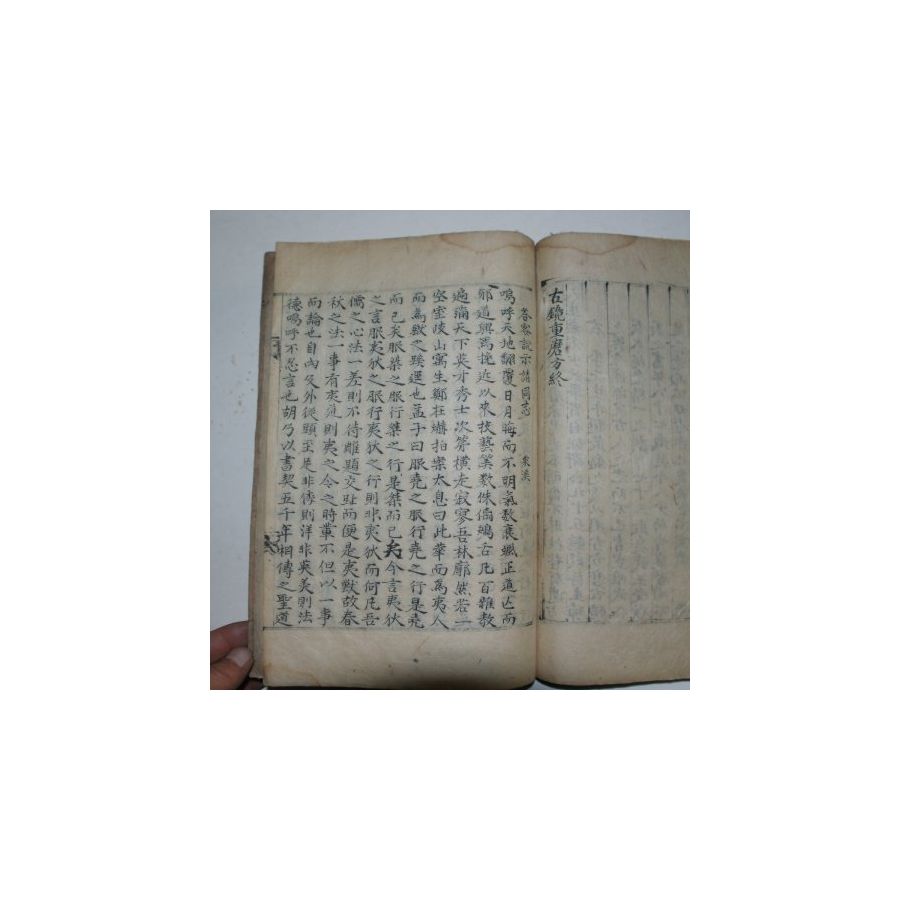 古鏡重磨方終
答客說示諸同志
嗚呼天地飜覆日月晦而不明氣數衰颯正道亡而
邪道興焉挽近以來技藝算數侏儒鴂舌凡百雜教
遍滿天下英才秀士次第橫走寂寥吾林廓然若一
空室陵山寓生鄭 拍案太息曰此華而爲夷人
而爲獸之 運也孟子曰服堯之服行堯之行是堯
而已矣服桀之服行桀之行是桀而已矣今言夷狄
之言服夷狄之服行夷狄之行則非夷狄而何凡吾
儒之心法一差則不待雕題交趾而便是夷獸故春
秋之法一事有夷 則夷之今之時輩不但以一事
而論也自內及外從頭至足非 則洋非英美則法
德嗚呼不忍言也胡乃以書契五千年相傳之聖道